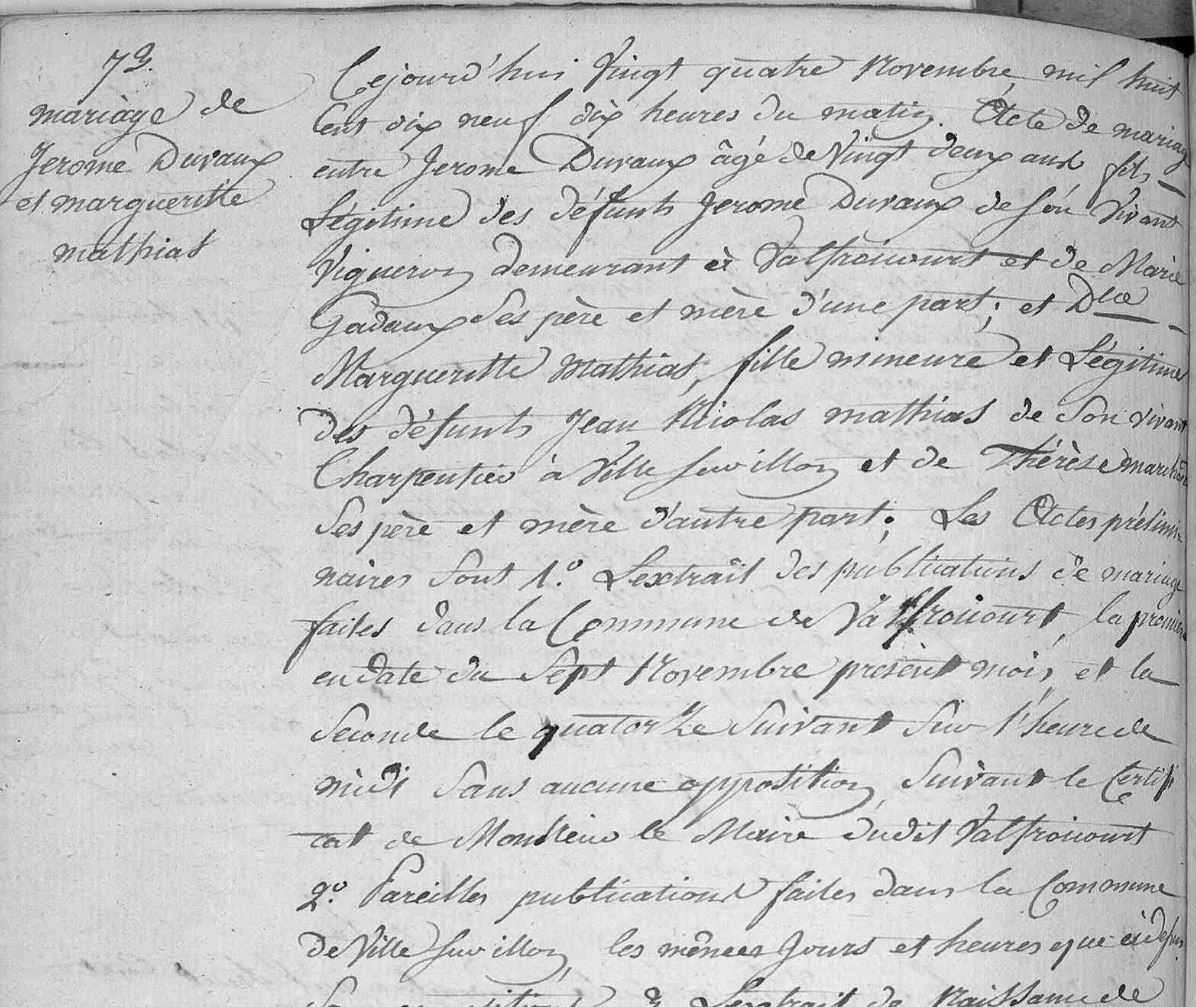 73.
mariage de
Jerome Duvaux
et margueritte
mathias
Cejourd'hui Vingt quatre Novembre, mil huit
Cent dix neuf dix heures du matin. Acte de mariage
entre Jerome Duvaux âgé de Vingt deux ans fils
Légitime des défunts Jerome Duvaux de son Vivant
Vigneron demeurant à Valfroicourt et de Marie
Gadaux Ses père et mère d'une part; et Dlle
Margueritte Mathias, fille mineure et Légitime
des défunts Jean Nicolas mathias de Son vivant
Charpentier à Ville sur illon et de Thérèse
Ses père et mère d'autre part; Les Actes prélimi-
naires Sont 1.º L'extrait des publications de mariage
faites dans la Commune de Valfroicourt, la première
en date du Sept Novembre présent mois, et la
Seconde le quatorze Suivant Sur l'heure de
midi Sans aucune opposition, Suivant le Certifi
cat de Monsieur le Maire dudit Valfroicourt
2.º Pareilles publications faites dans la Commune
de Ville sur illon, les mêmes Jours et heures que ci dessus
3 L'extrait de Naissance de